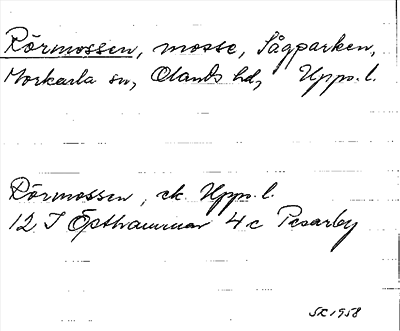 Rörmossen, mosse, Sågparken,
Morkarla sn, Olands hd, Upps. l.
Rörmossen, ek. Upps. l.
12 I Östhammar 4 c Pesarby
SK 1958